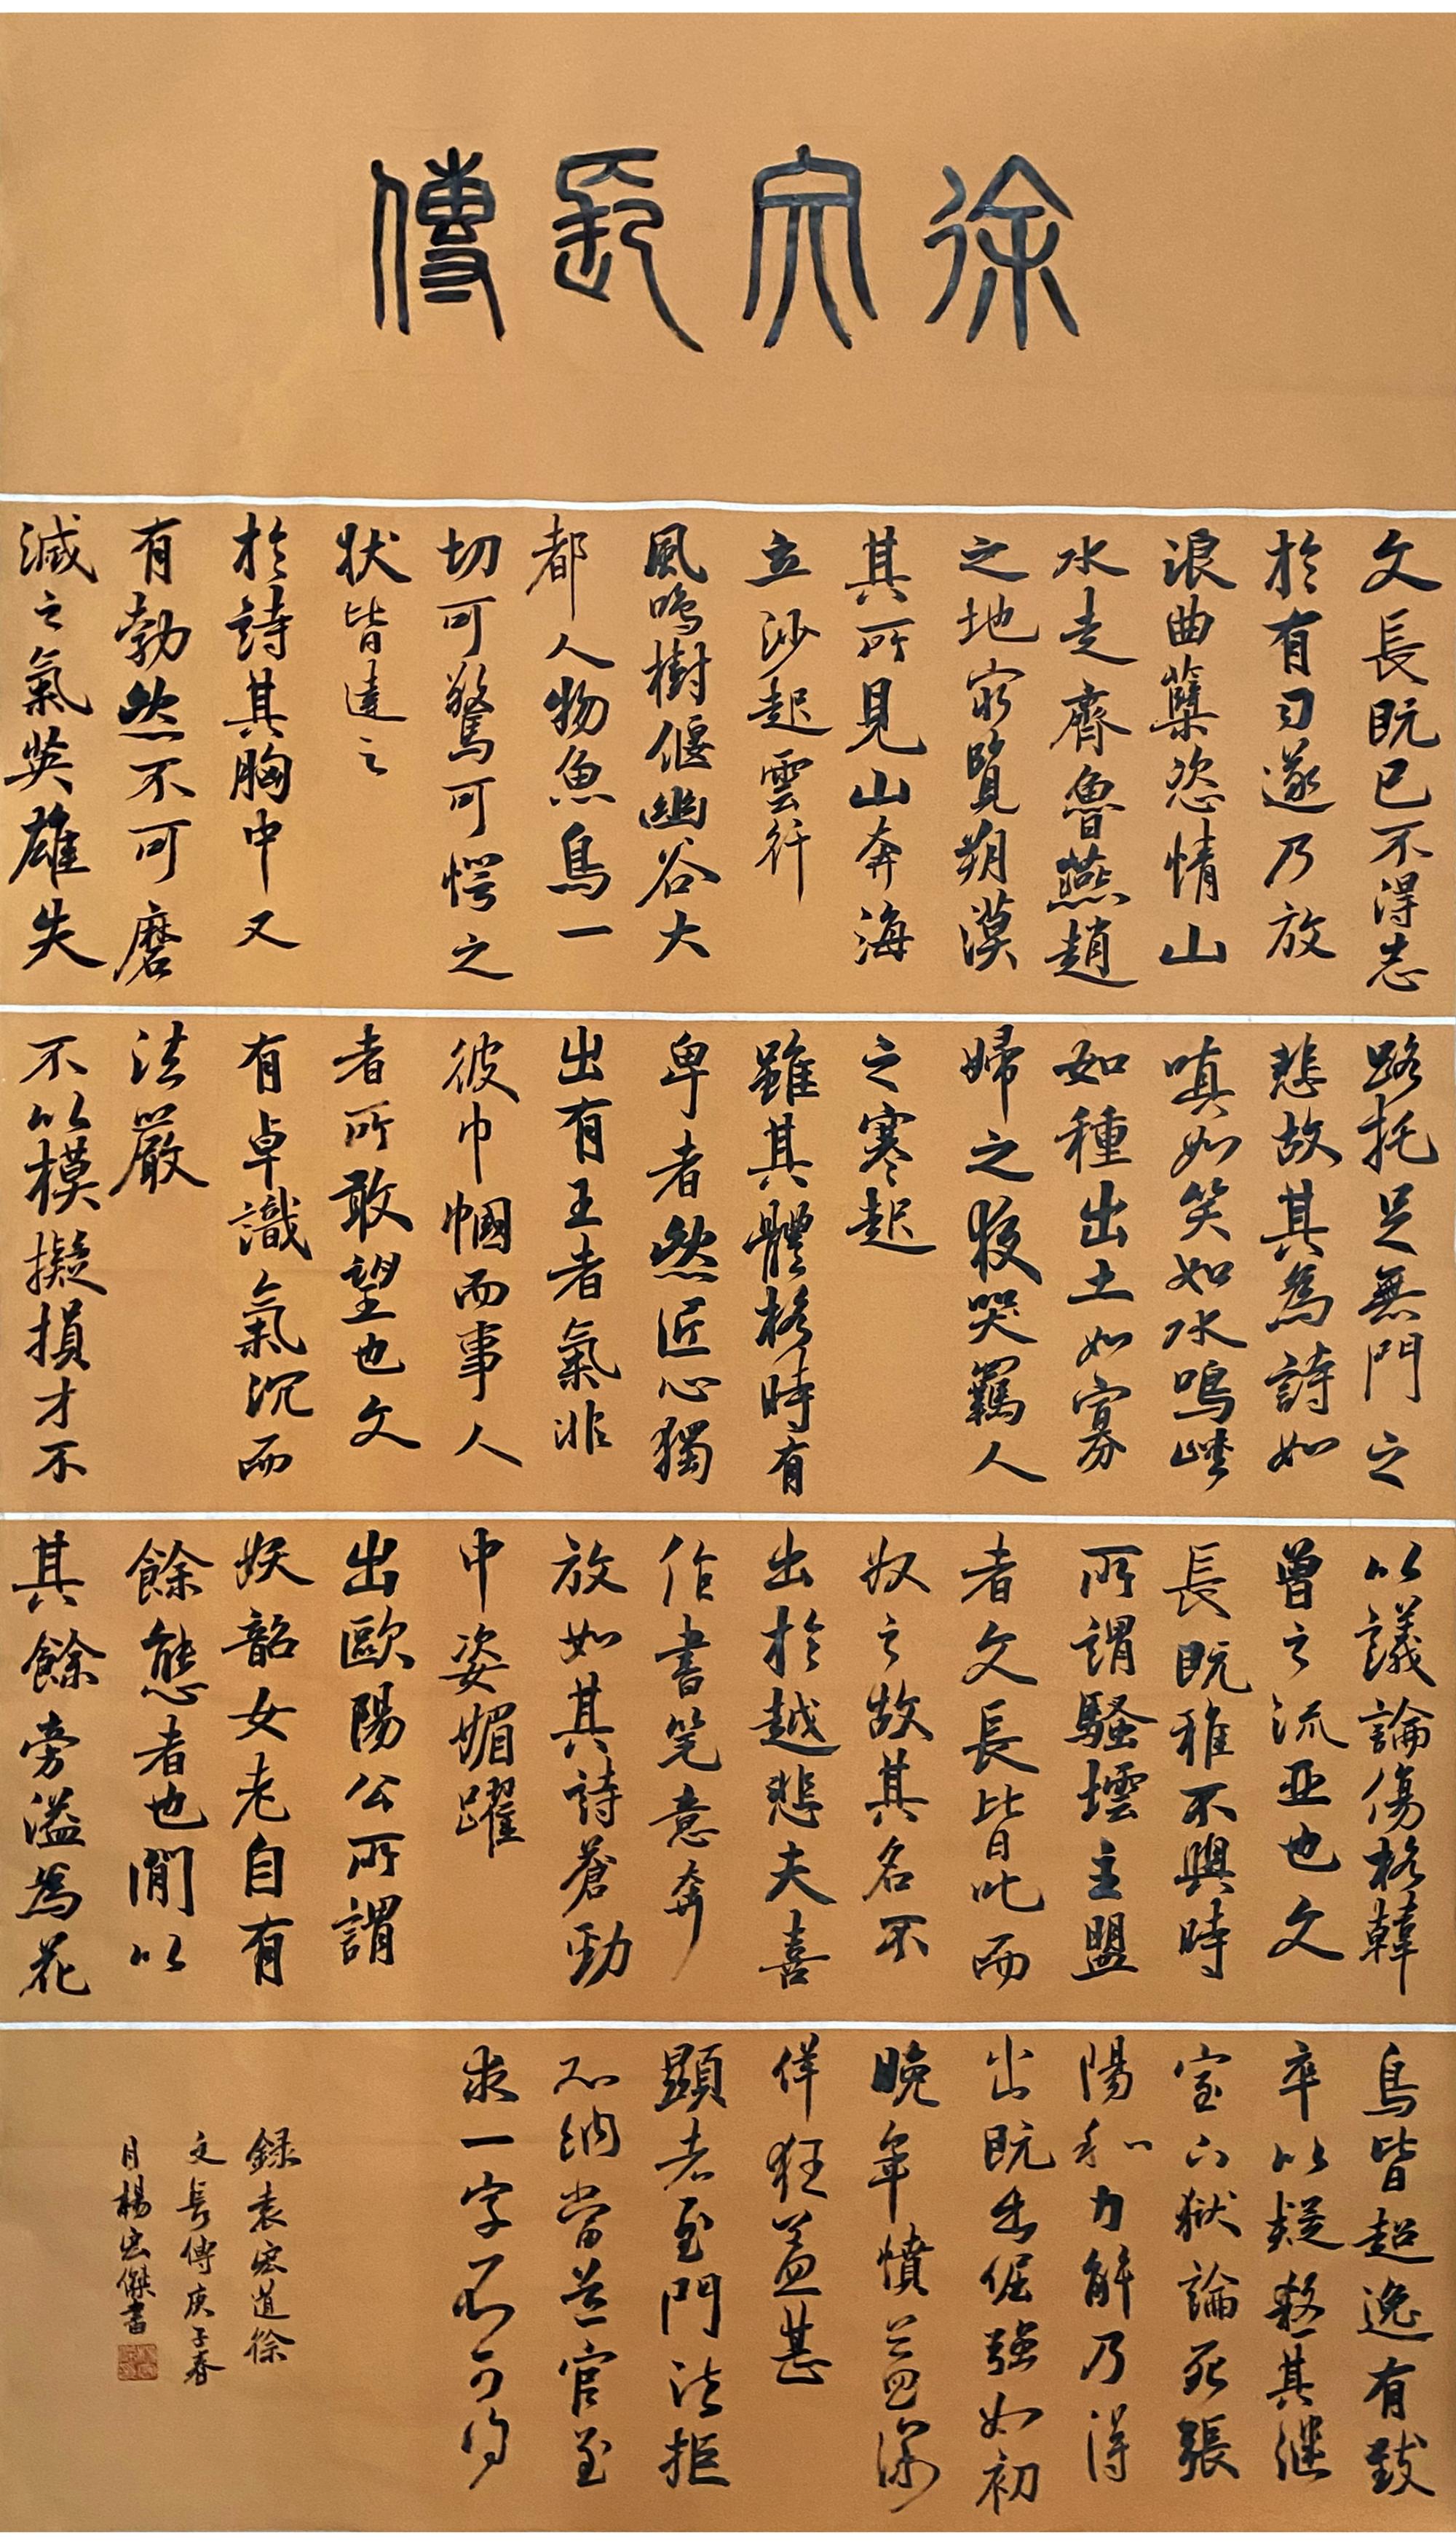 徐文長傳
文長既已不得志
於有司遂乃放
浪曲糵恣情山
水走齊魯燕趙
之地窮覽朔漠
其所見山奔海
立沙起雲行
風鳴樹偃幽谷大
都人物魚鳥一
切可驚可愕之
狀皆達之
於詩其胸中又
有勃然不可磨
滅之氣英雄失
路托足無門之
悲故其為詩如
嗔如笑如水鳴峽
如種出土如寡
婦之夜哭羈人
之寒起
雖其體格時有
卑者然匠心獨
出有王者氣非
彼巾幗而事人
者所敢望也文
有卓識氣沉而
法嚴
不以模擬損才不
以議論傷格韓
曾之流亞也文
長既雅不與時
所謂騷壇主盟
者文長皆叱而
奴之故其名不
出於越悲夫喜
作書筆意奔
放如其詩蒼勁
中姿媚躍
出歐陽公所謂
妖韶女老自有
餘態者也間以
其餘旁溢為花
鳥皆超逸有致
卒以疑殺其繼
室下獄論死張
陽和力解乃得
出既出倔強如初
晚年憤益深
佯狂益甚
顯者至門法拒
不納當道官至
求一字不可得
錄袁宏道徐
文長傳庚子春
月楊宏傑書